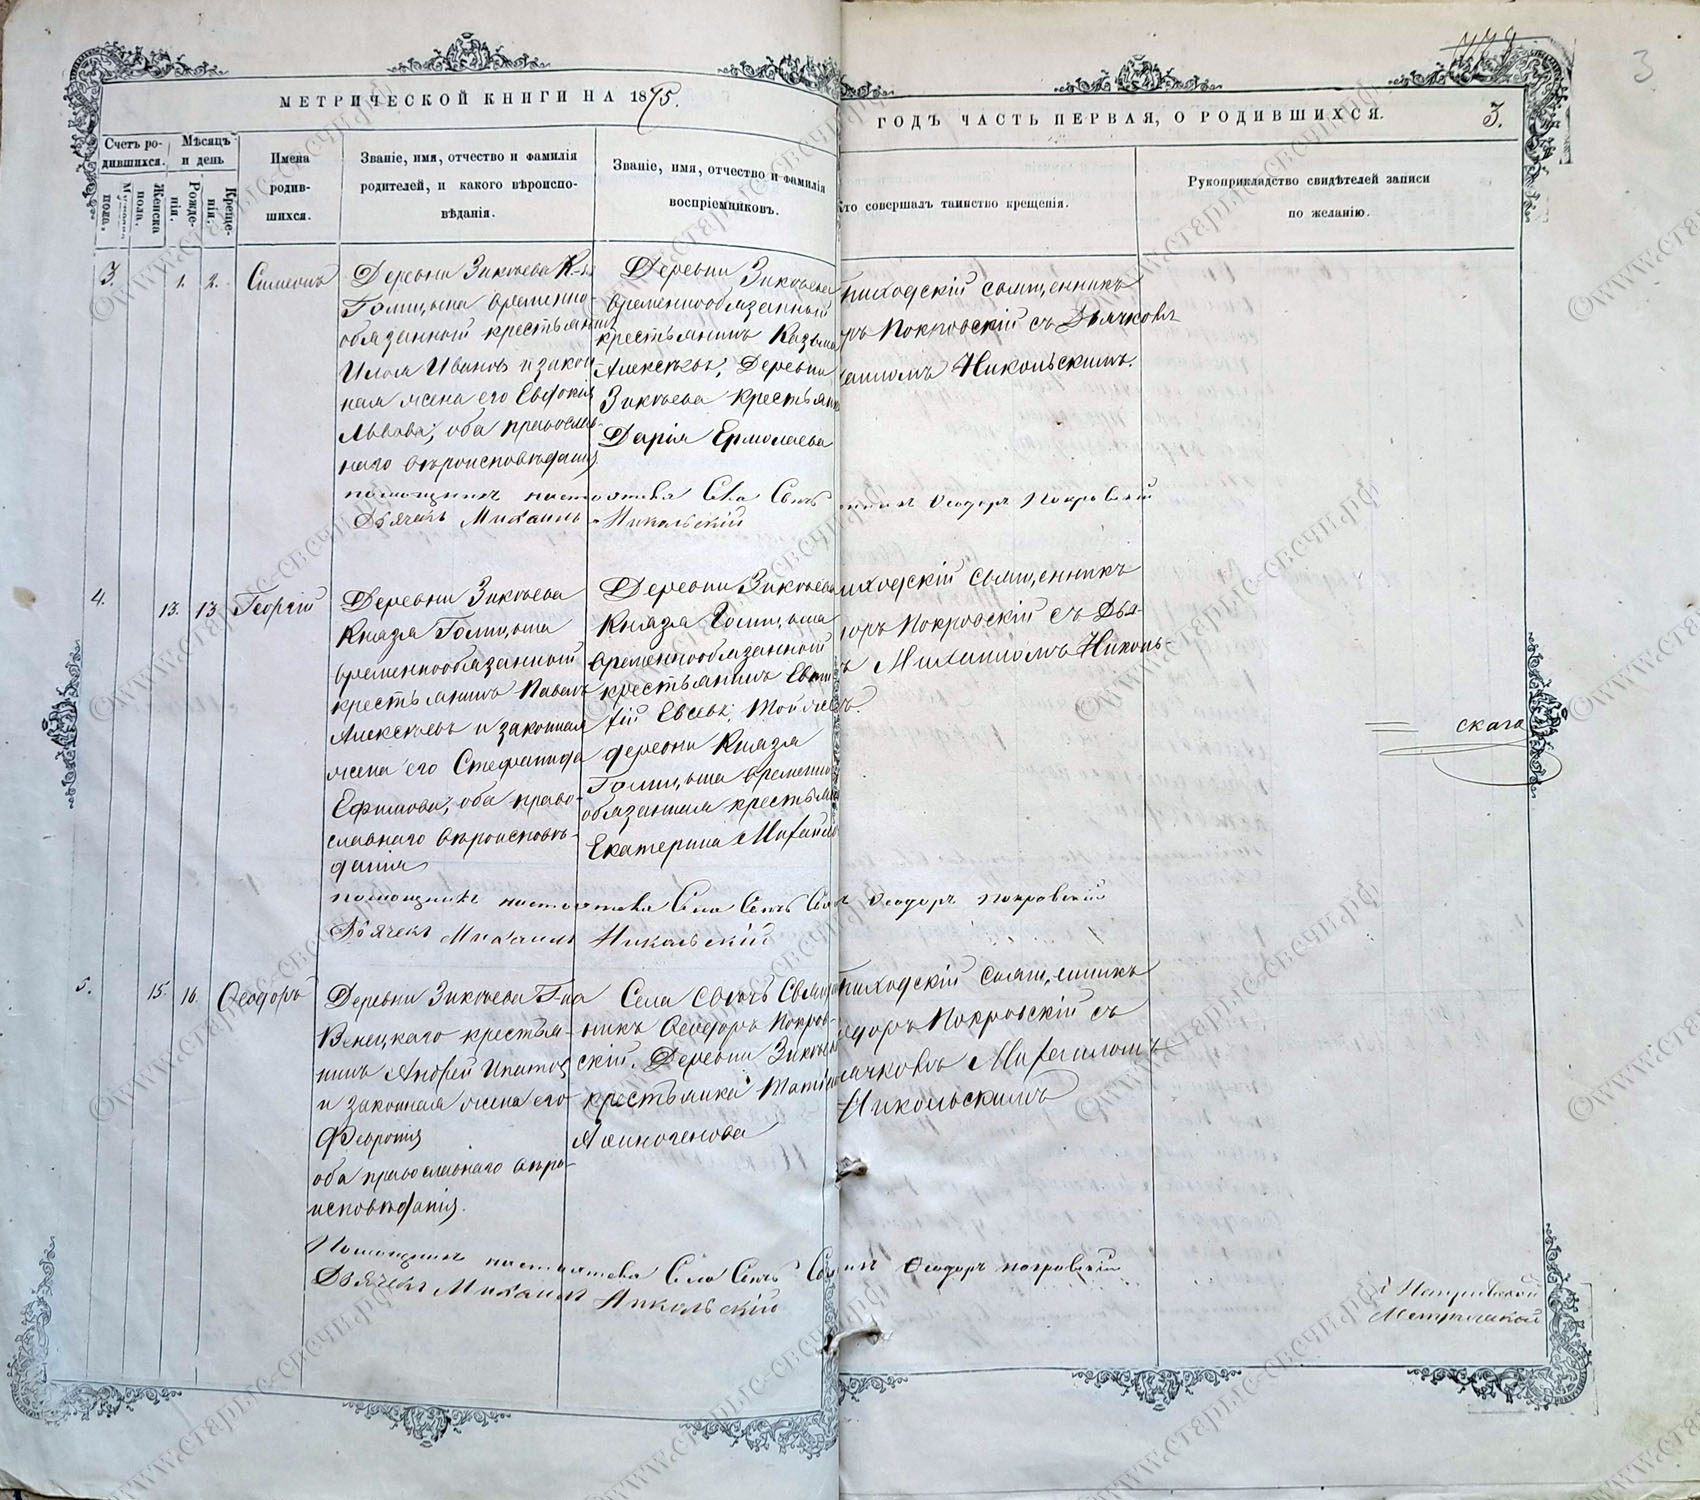 МЕТРИЧЕСКОЙ КНИГИ НА 1875.
ГОДЪ ЧАСТЬ ПЕРВАЯ, О РОДИВШИХСЯ.
3.
3
Счетъ ро-
дившихся.
Мужеска
пола.
Женска
пола.
Мѣсяцъ
и день
Рожде-
нія.
Креще-
нія.
Имена
родив-
шихся.
Званіе, имя, отчество и фамилія
родителей, и какого вѣроиспо-
вѣданія.
Званіе, имя, отчество и фамилія
воспріемниковъ.
Кто совершалъ таинство крещенія.
Рукоприкладство свидѣтелей записи
по желанію.
3.
1.
2.
Симеонъ
Деревни Зикѣева К-зя
Голицына временно-
обязанный крестьянинъ
Иванов и закон
ная жена его Евдокія
Львова; оба православ-
наго вѣроисповѣданія
Деревни Зикѣева
временнообязанный
крестьянинъ Казьма
Алексѣевъ, Деревни
Зикѣева крестьянка
Дарія Ермолаева
приходскій священникъ
оръ Покровскій съ Дьячковъ
хаиломъ Никольскимъ.
помощникъ настоятеля Села Сенъ
Дьячекъ Михаилъ Никольскій
Ѳеодоръ Покровскій
4.
13.
13
Георгій
Деревни Зикѣева
Князя Голицына
временнообязанный
крестьянинъ Павелъ
Алексѣевъ и законная
жена его Стефанида
Ефимова; оба право-
славнаго вѣроисповѣ-
данія
Деревни Зикѣева
Князя Голицына
временнообязанный
крестьянинъ
Евсевъ; той же
деревни Князя
Голицына временно
обязанная крестьян
Екатерина Михаил
иходскій священникъ
доръ Покровскій съ Дья-
ъ Михаиломъ Николь-
ъ.
скаго
помощникъ настоятеля Села Сенъ Ѳеодоръ Покровскій
Дьячекъ Михаилъ Никольскій
5.
15.
16.
Ѳеодоръ
Деревни Зикѣева Г-на
Венецкаго крестьян-
нинъ Андрей Ипатов
и законная жена его
Феврония
оба православнаго вѣро-
исповѣданія.
Села Священ
никъ Ѳеодоръ Покров-
скій. Деревни Зикѣева
крестьянка
Аѳиногенова
приходскій священникъ
еодоръ Покровскій съ
ьячковъ Михаиломъ
Никольскимъ
Помощникъ настоятеля Села Сенъ Ѳеодоръ Покровскій
Дьячекъ Михаилъ Никольскій
Метрической
©www.старыс-свсчи.рф